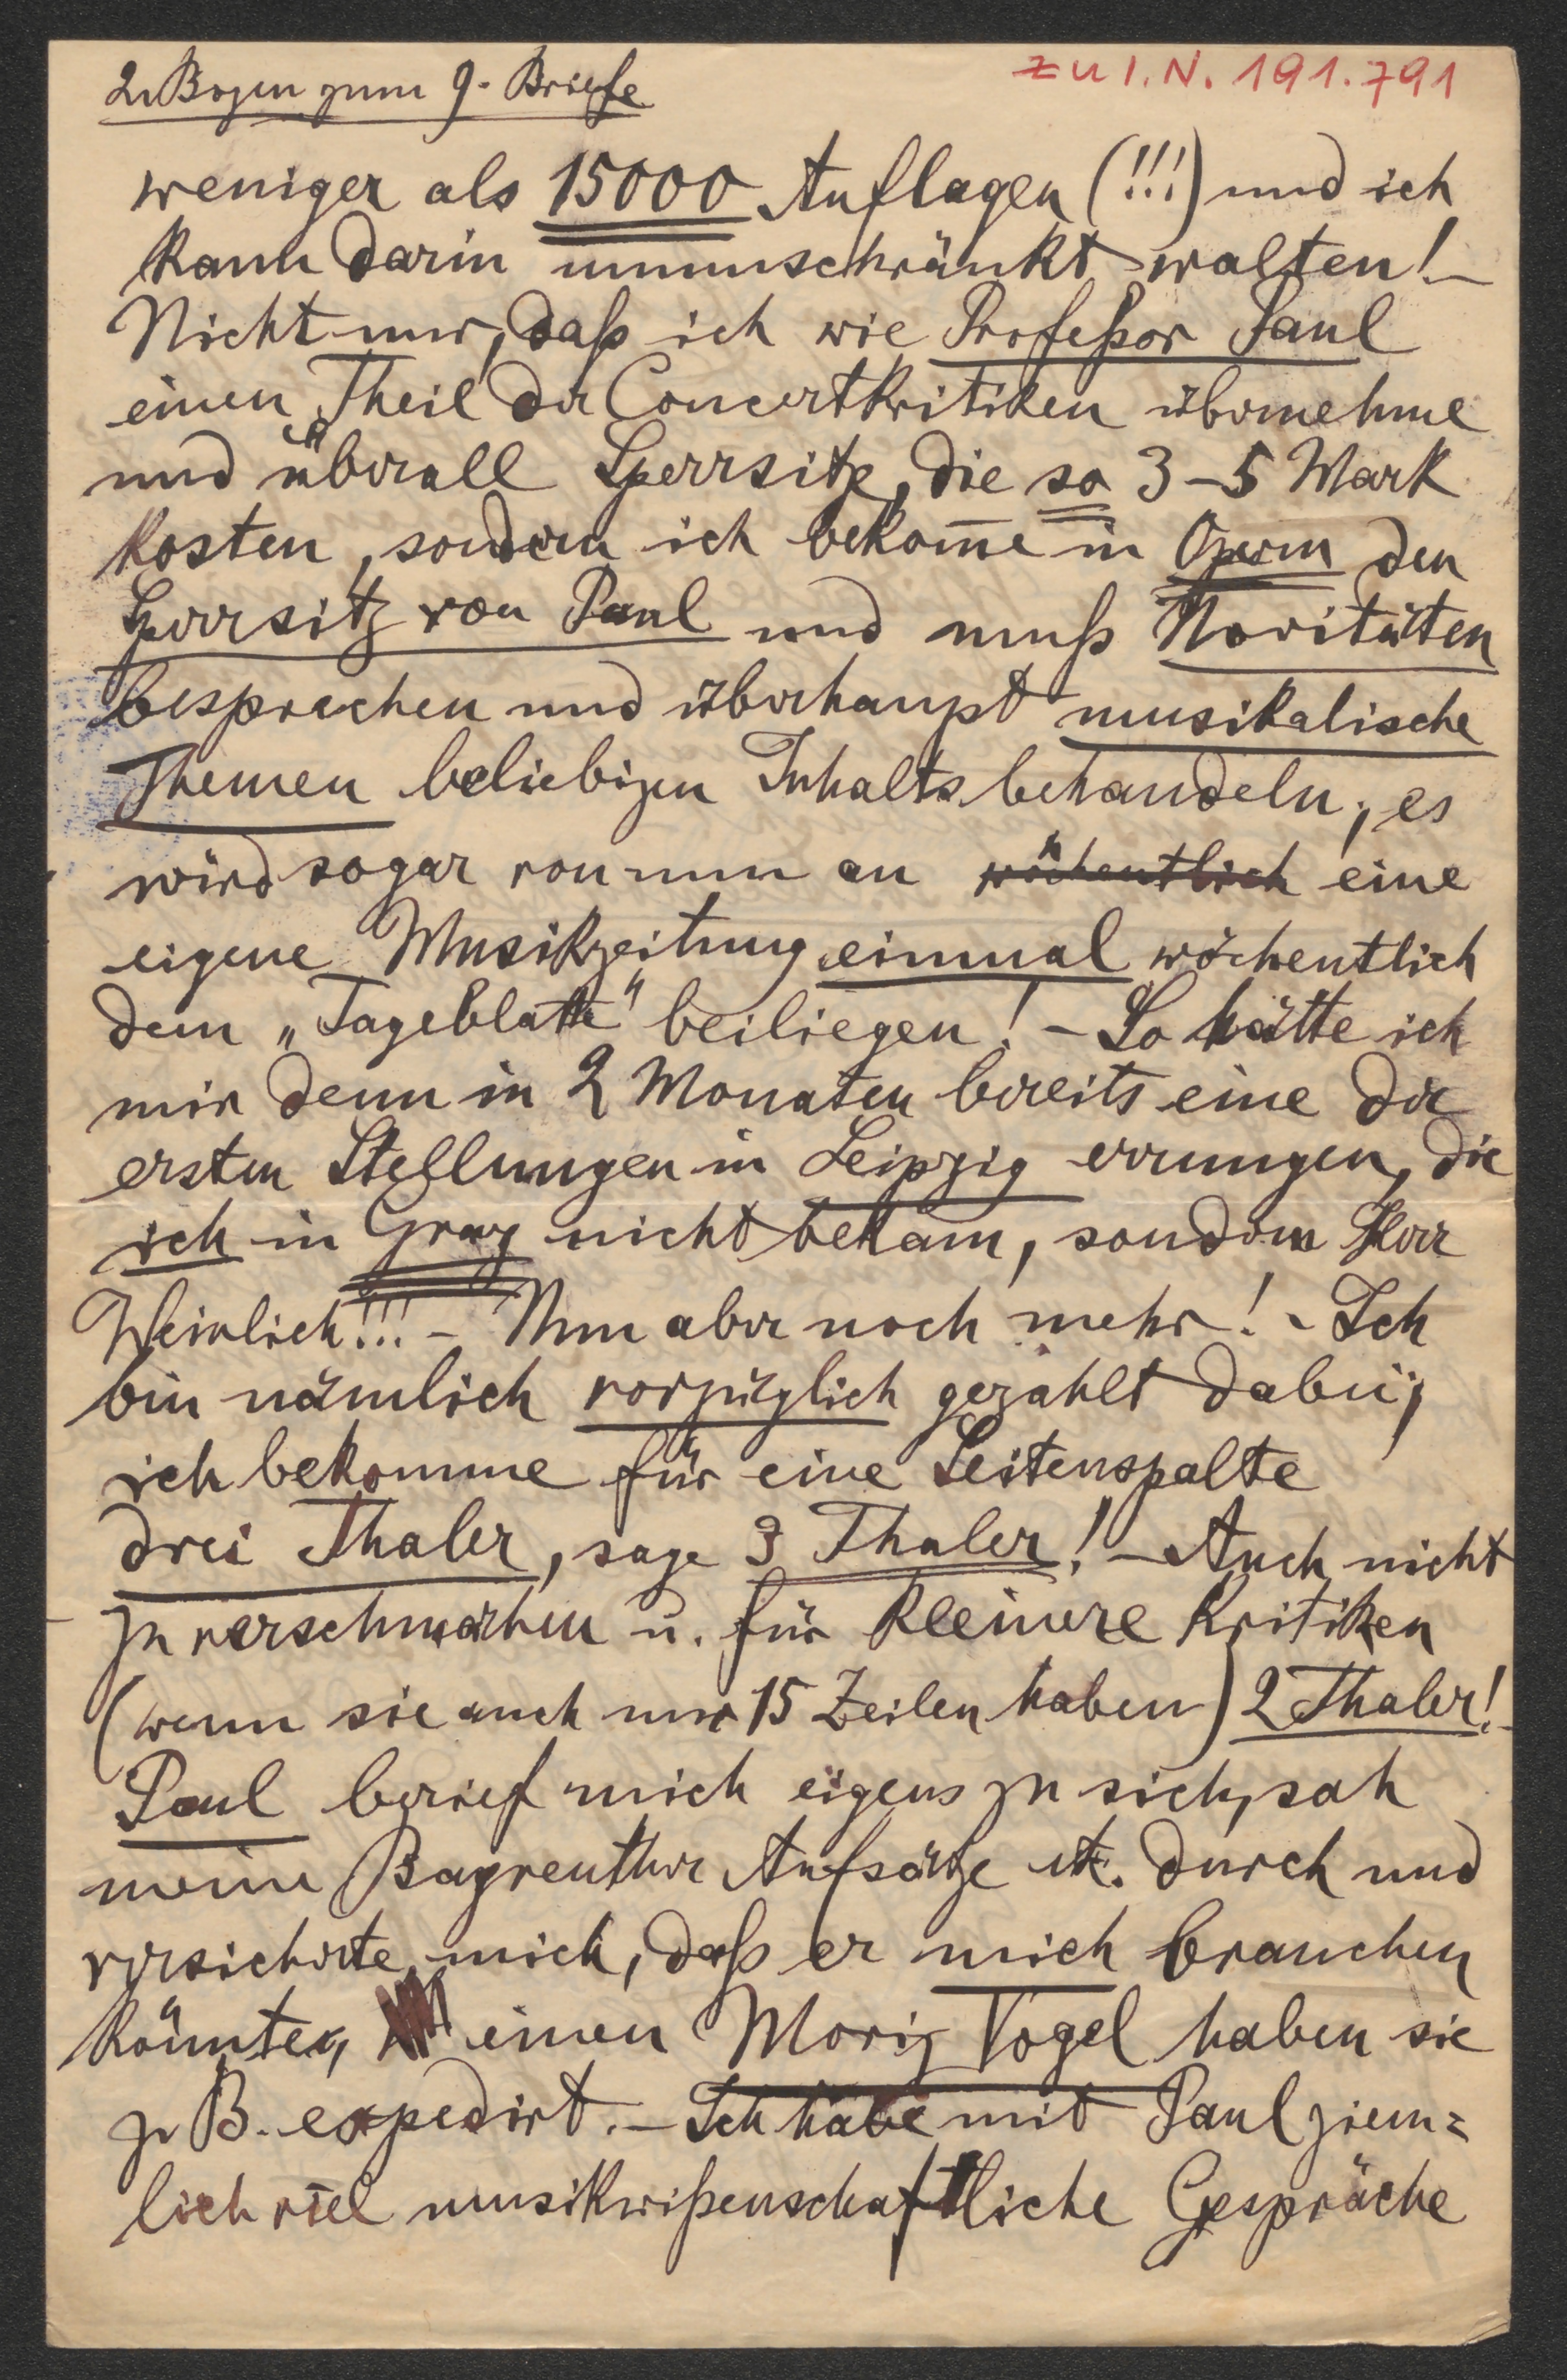 2. Bogen zum 9. Briefe
zu I.N. 191.791
weniger als 15000 Auflagen (!!!) und ich
kann darin unumschränkt walten! –
Nicht nur, daß ich wie Profeßor Paul
einen Theil der Concertkritiken übernehme
und überall Sperrsitze, die so 3–5 Mark
kosten, sondern ich bekom̅e in Opern den
Sperrsitz von Paul und muß Novitäten
besprechen und überhaupt musikalische
Themen beliebigen Inhalts behandeln; es
wird sogar von nun an wöchentlich eine
eigene Musikzeitung einmal wöchentlich
dem „Tageblatte" beiliegen! – So hätte ich
mir denn in 2 Monaten bereits eine der
ersten Stellungen in Leipzig errungen, die
ich in Graz nicht bekam, sondern Herr
Weinlich!!! – Nun aber noch mehr! – Ich
bin nämlich vorzüglich gezahlt dabei;
ich bekomme für eine Seitenspalte
drei Thaler, sage 3 Thaler! – Auch nicht
zu verschmähen u. für kleinere Kritiken
(wenn sie auch nur 15 Zeilen haben) 2 Thaler! –
Paul berief mich eigens zu sich, sah
meine Bayreuther Aufsätze etc. durch und
versicherte mich, daß er mich brauchen
könnte, einen Moriz Vogel haben sie
z. B. expedirt. – Ich habe mit Paul ziem=
lich viel musikwißenschaftliche Gespräche